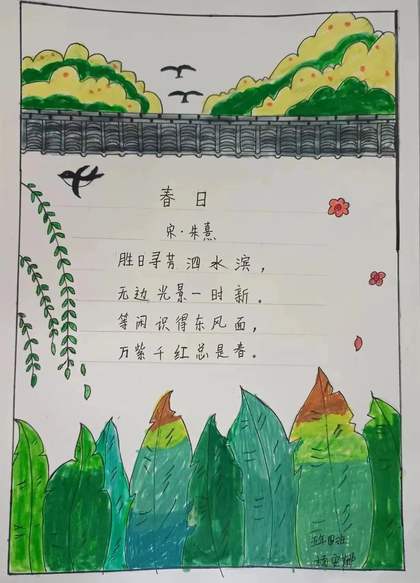 春日
宋·朱熹
胜日寻芳泗水滨，
无边光景一时新。
等闲识得东风面，
万紫千红总是春。